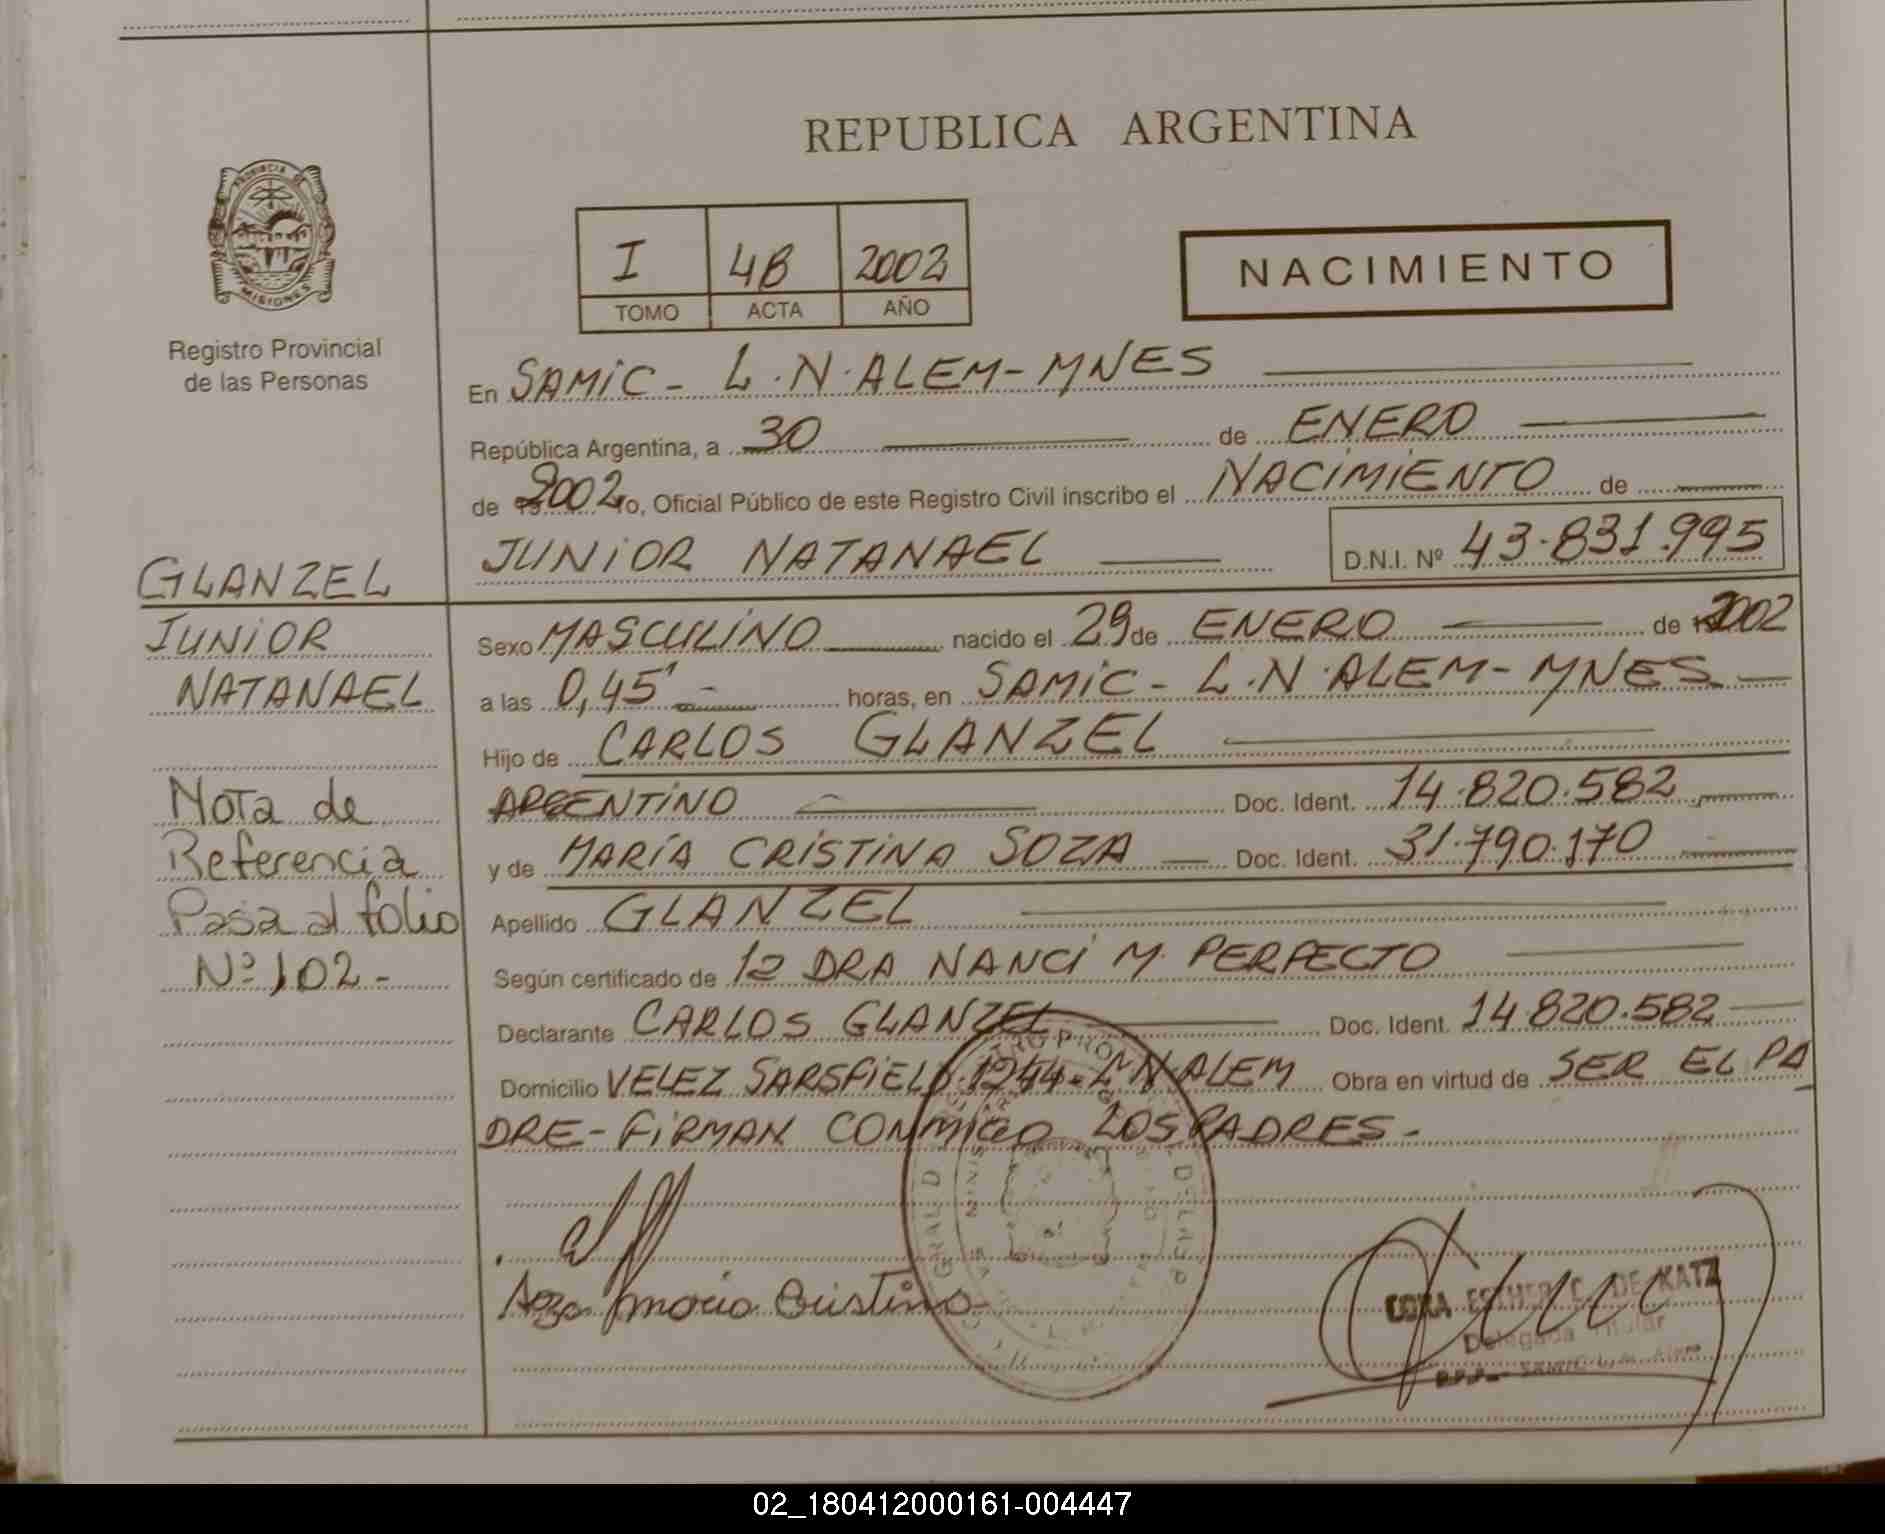 REPUBLICA ARGENTINA
PROVINCIA DE
MISIONES
Registro Provincial
de las Personas
I 48 2002
TOMO ACTA AÑO
NACIMIENTO
En SAMiC - L.N.ALEM-MNES
República Argentina, a 30 de ENERO
de 2002 Yo, Oficial Público de este Registro Civil inscribo el NACIMIENTO de
JUNiOR NATANAEL D.N.I. Nº 43.831.995
GLANZEL
JUNiOR
NATANAEL
Nota de
Referencia
Pasa al folio
Nº 102-
Sexo MASCULiNO nacido el 29 de ENERO de 2002
a las 0,45' horas, en SAMiC - L.N.ALEM-MNES
Hijo de CARLOS GLANZEL
ARGENTiNO Doc. Ident. 14.820.582
y de MARÍA CRiSTiNA SOZA Doc. Ident. 31.790.170
Apellido GLANZEL
Según certificado de la DRA NANCi M. PERFECTO
Declarante CARLOS GLANZEL Doc. Ident. 14820.582
Domicilio VELEZ SARSFiELD 1244-L N ALEM Obra en virtud de SER EL PA
DRE-FiRMAN CONMiGO LOS PADRES-
Soza maria Cristina
CORA ESTHER C. DE KATZ
Delegada Titular
02_180412000161-004447